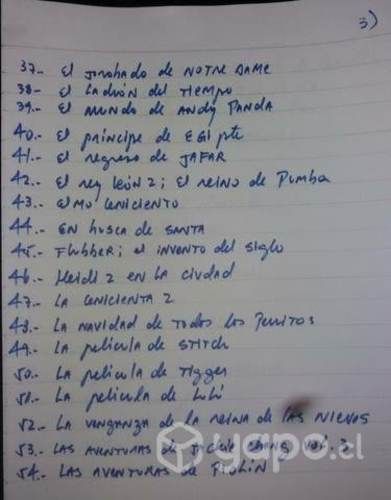 3)
37.- El jorobado de NOTRE DAME
38.- El LADRÓN del TIEMPO
39.- El MUNDO de ANDY PANDA
40.- El príncipe de EGIpto
41.- El regreso de JAFAR
42.- El rey león 2; El REINO de Pumba
43.- ElMO CENICIENTO
44.- EN busca de SANTA
45.- Flubber; el INVENTO del Siglo
46.- Heidi 2 EN LA CIUDAD
47.- LA CENICIENTA 2
48.- LA NAVIDAD de Todos los Perritos
49.- LA película de STITCH
50.- LA película de Tigger
51.- LA película de Lilí
52.- LA VENGANZA de LA REINA de LAS NIEVES
53.- LAS AVENTURAS de JACKIE CHANG, Vol. 3
54.- LAS AVENTURAS de PIOLÍN
yapo.cl